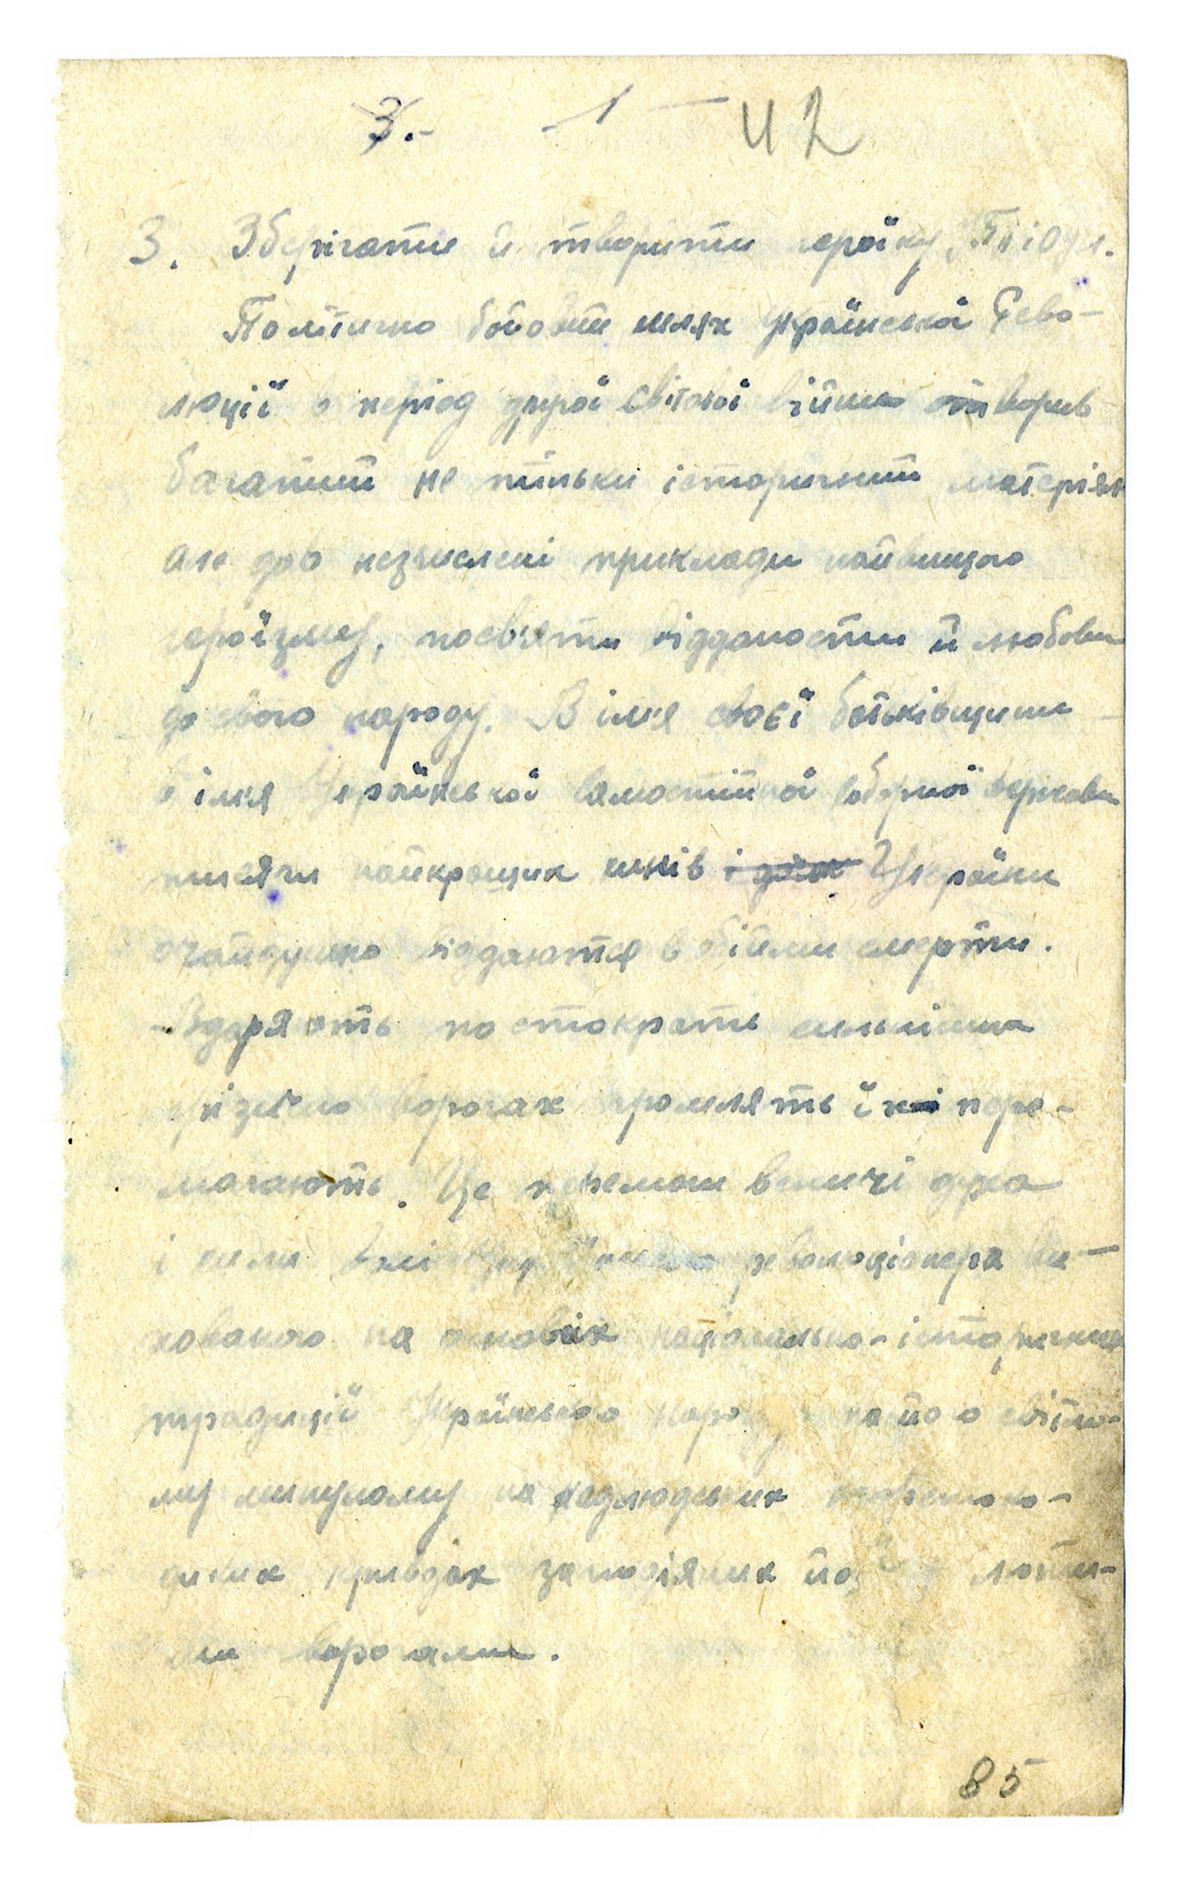 3.- 1 42
3. Зберігати й творити героїку
Політично бойовий шлях Української Рево-
люції в період другої світової війни створив
багатий не тільки історичний матеріял
але дав незчислені приклади найвищого
героїзму, посвяти відданости й любови
до свого народу. В імя своєї батьківщини
в імя Української самостійної соборної держави
тисячи найкращих синів і дочок України
відаються в обійми смерти.
Вдаряють по стократь сильніших
ворогах громлять їх і пере-
магають. Це величі духа
і сили революціонера ви-
хованого на основах національно-історичних
традицій Українського народу на його світло-
му минулому на нелюдських
кривдах заподіяних йому лютни-
ми ворогами.
85